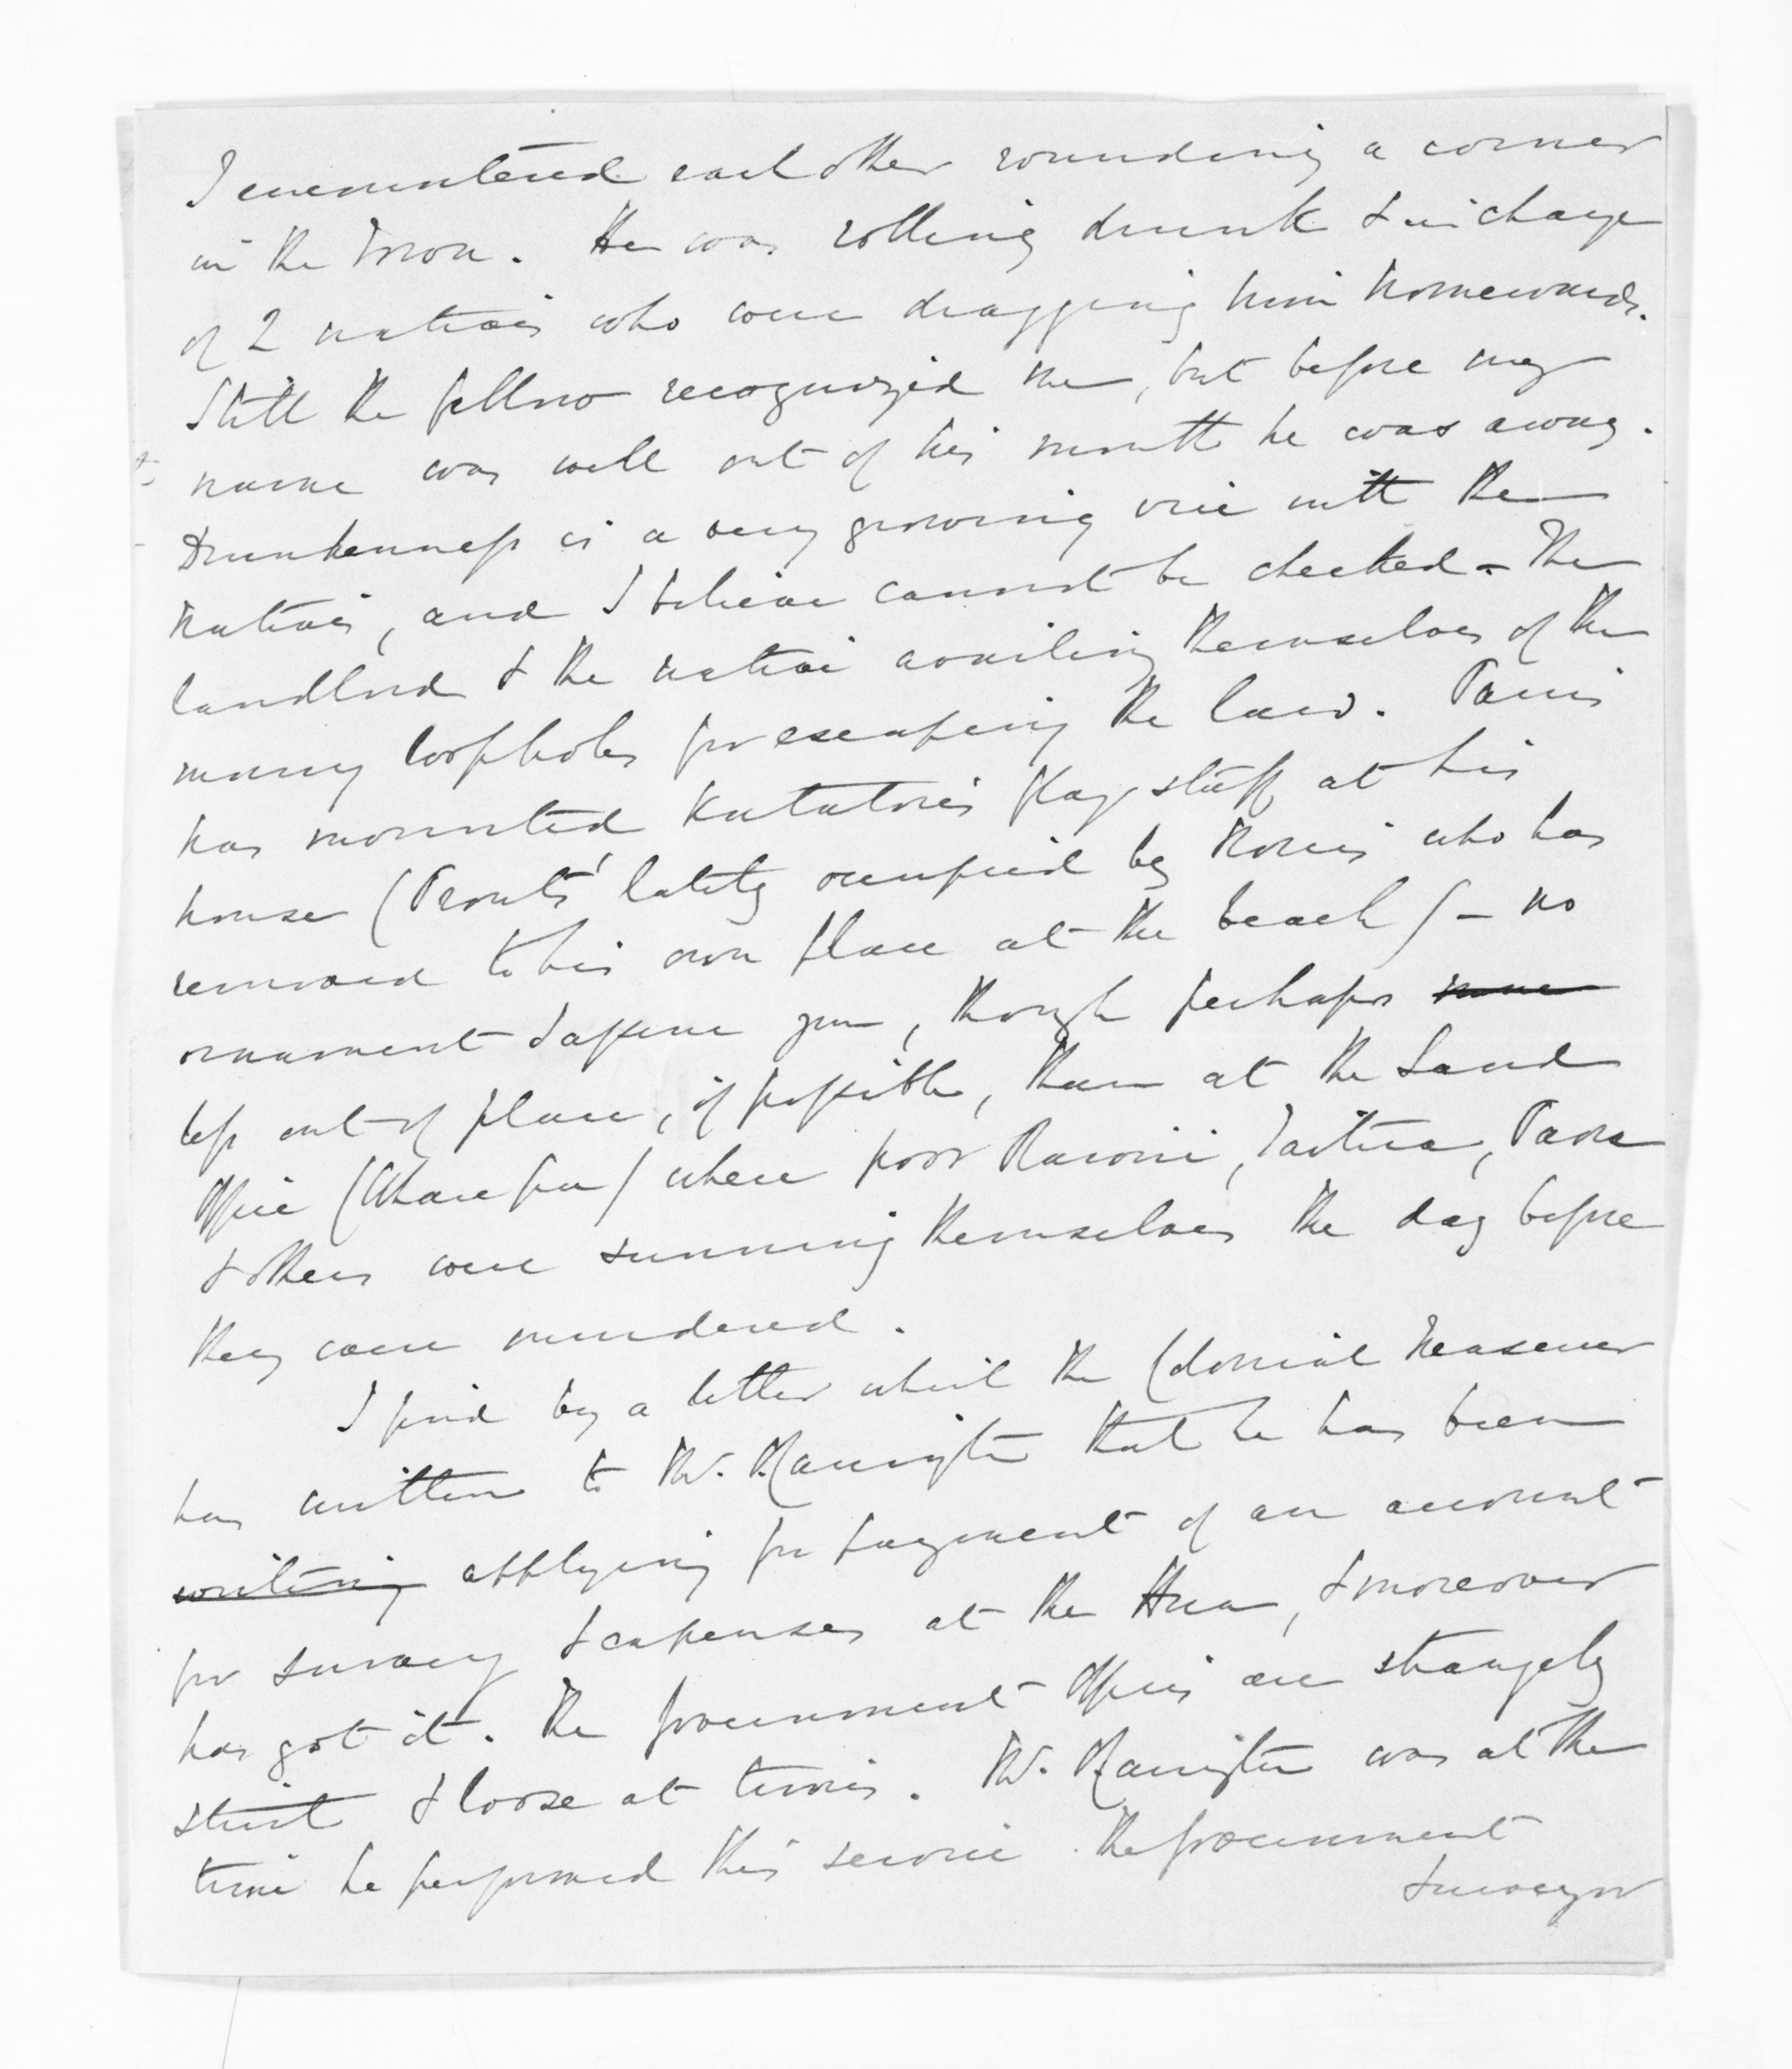 I encountered each other rounding a corner
in the Town. He was rolling drunk & in charge
of 2 natives who were dragging him homewards.
Still the fellow recognized me, but before my
name was well out of his mouth he was away.
Drunkenness is a very growing vice with the
natives, and I believe cannot be checked - The
landlord & the native availing themselves of the
many loopholes for escaping the law.
has mounted Katatore's flag staff at his
house (Prout's lately occupied by Norris who has
removed to his own place at the beach) - no
ornament I assure you, though perhaps
less out of place, if possible, than at the Land
Office (Whare pu) where poor Rawiri, Paora
& others were sunning themselves the day before
they were murdered.
I find by a letter which the Colonial Treasurer
has written to Mr. Harington that he has been
writing applying for payment of an account
for survey & expenses at the Hua, & moreover
has got it. The Government Offices are strangely
strict & loose at times. Mr. Harington was at the
time he performed this service the Government
Surveyor